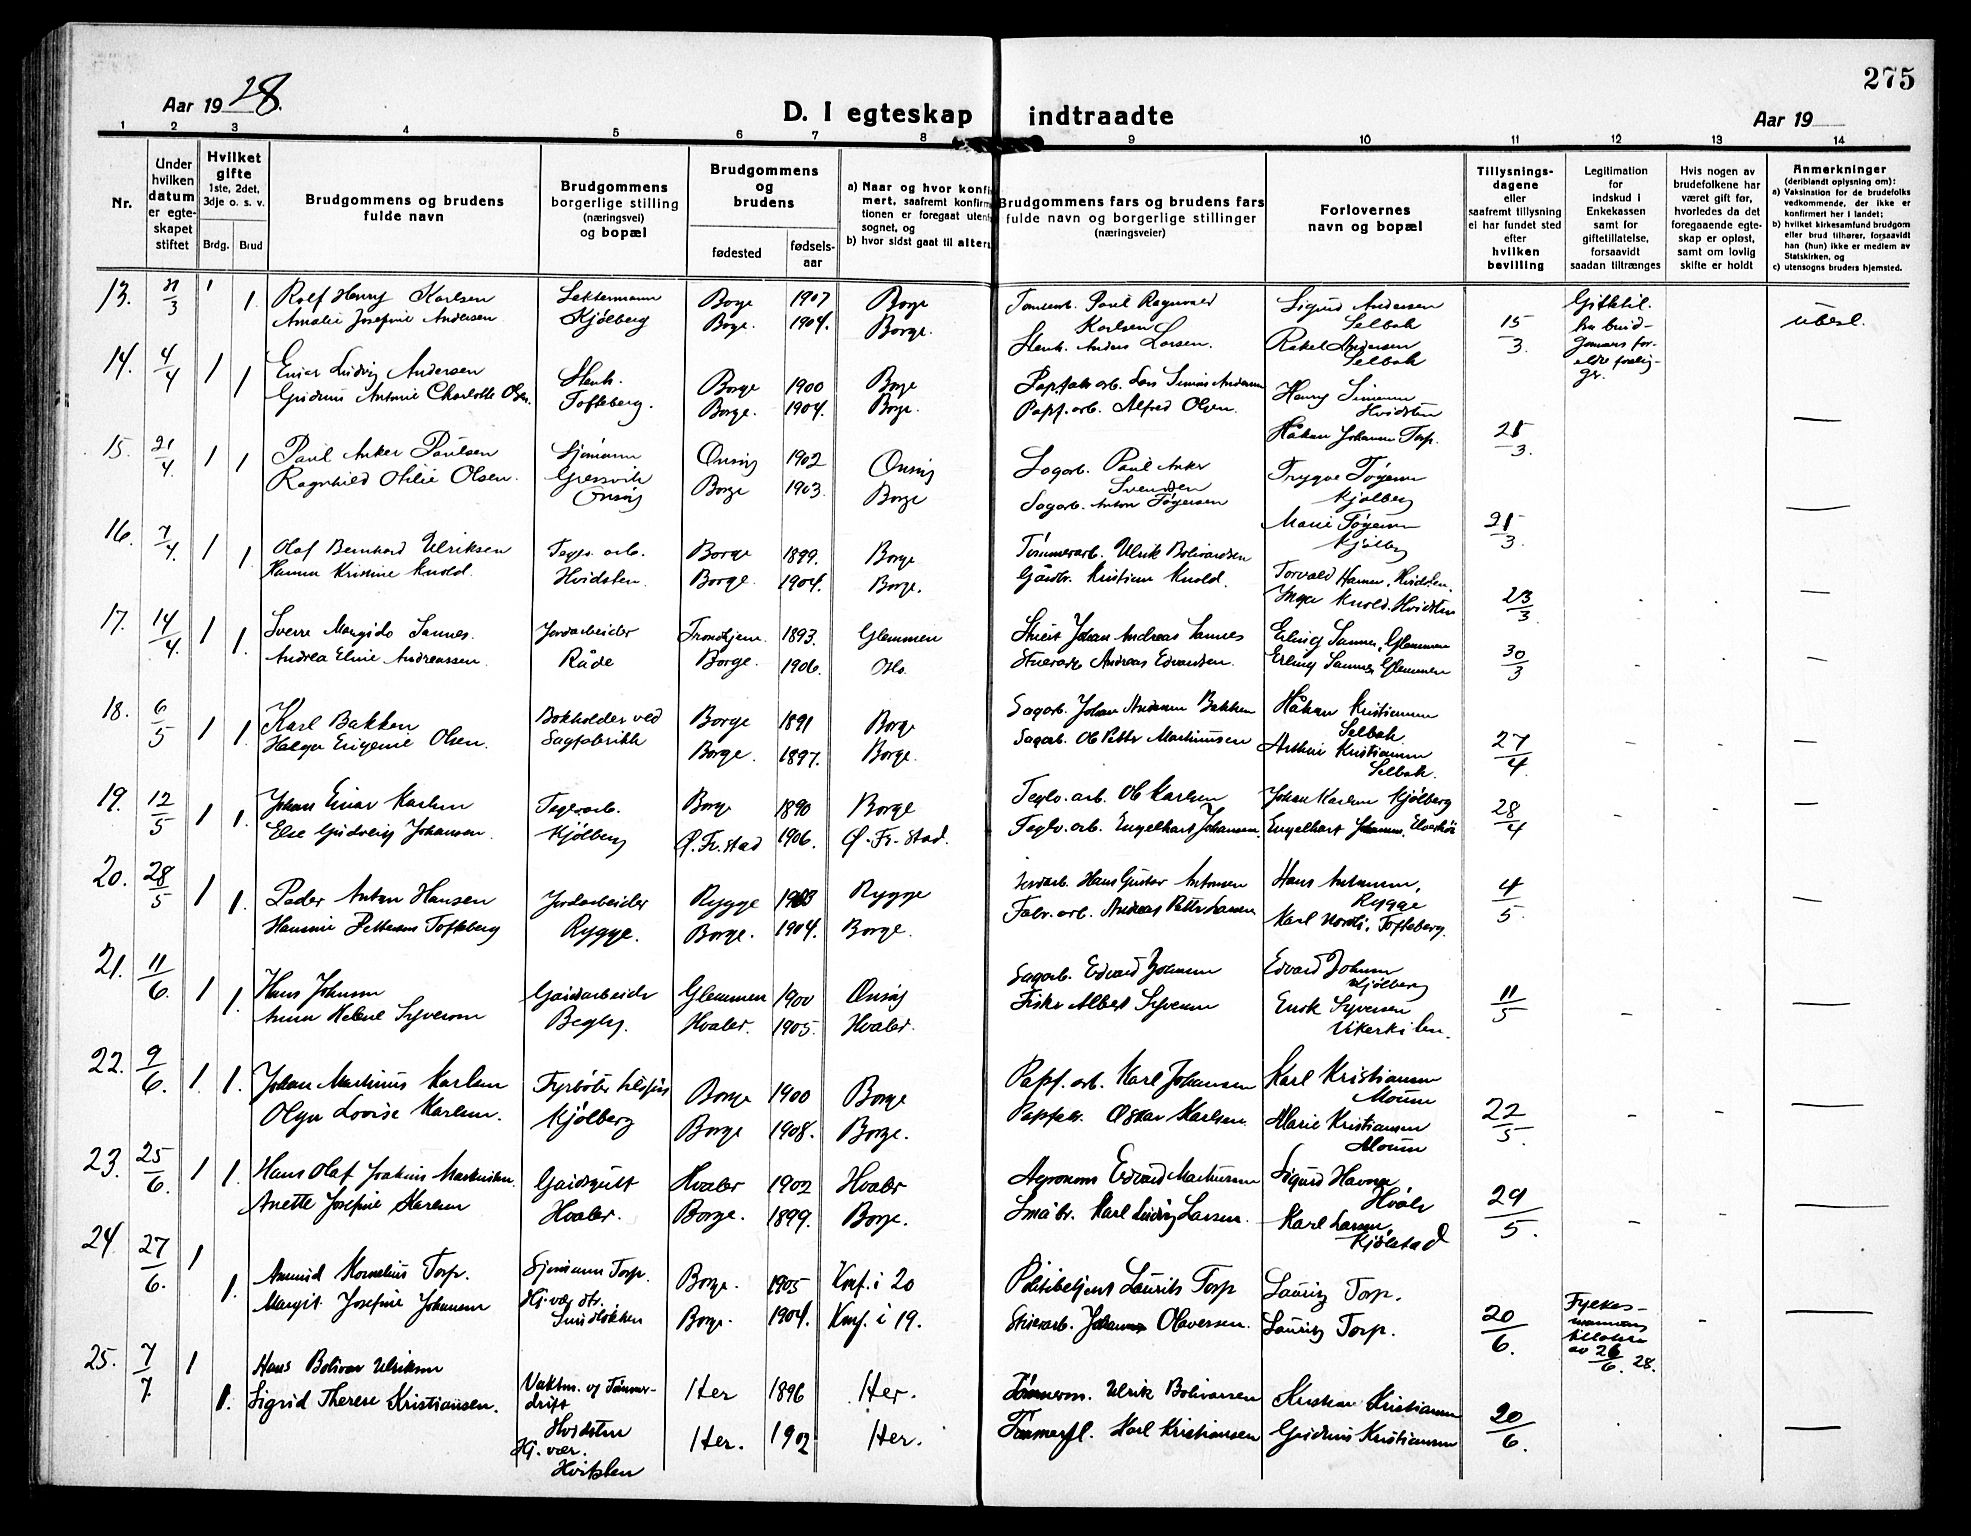 275
Aar 1928.
D. I egteskap indtraadte
Aar 19
1 2 3 4 5 6 7 8 9 10 11 12 13 14
Nr.
Under hvilken datum er egteskapet stiftet
Hvilket gifte 1ste, 2det, 3dje o. s. v.
Brdg. Brud
Brudgommens og brudens fulde navn
Brudgommens borgerlige stilling (næringsvei) og bopæl
Brudgommens og brudens
fødested
fødselsaar
a) Naar og hvor konfir
mert, saafremt konfirm
tionen er foregaat utenf
sognet, og
b) hvor sidst gaat til altera
Brudgommens fars og brudens fars fulde navn og borgerlige stillinger (næringsveier)
Forlovernes navn og bopæl
Tillysningsdagene eller saafremt tillysning ei har fundet sted efter hvilken bevilling
Legitimation for indskud i Enkekassen samt for giftetillatelse, forsaavidt saadan tiltrænges
Hvis nogen av brudefolkene har været gift før, hvorledes da det foregaaende egteskap er opløst, samt om lovlig skifte er holdt
Anmerkninger (deriblandt oplysning om): a) Vaksination for de brudefolks vedkommende, der ikke er konfirmert her i landet; b) hvilket kirkesamfund brudgom eller brud tilhører, forsaavidt han (hun) ikke er medlem av Statskirken, og c) utensogns bruders hjemsted.
13. 1 1. Rolf Henry Karlsen Borge 1907 Borge Paul Ragnvald Sigurd Andersen Giftetil.
Amalie Josefine Andersen Kjølberg Borge. 1904. Borge. Karlsen Selbak 15/3. ubesl.
Anders Larsen. Rakel Andersen
Selbak
14. 4/4 1 1 Einar Ludvig Andersen Borge 1900 Borge Papfabr. arb. Lars Simon Andersen Henry Simensen
Gudrun Antonie Charlotte Olsen. Tofteberg. Borge. 1904. Borge. Papf. arb. Alfred Olsen. Hvidsten
Håkon Johansen Torp. 21/3.
15. 21/4 1 1 Paul Anker Paulsen Sjømann Onsøy 1902 Onsøy Sagarb. Paul Anker Trygve Tøgersen
Ragnhild Otilie Olsen. Gressvik Borge 1903. Borge Svendsen Kjølberg
Onsøy Sagarb. Anton Tøgersen Marie Tøgersen 21/3.
Kjølberg
16. 7/4. 1 1. Olaf Bernhard Ulriksen Teglv. arb. Borge 1899. Borge Tømmerarb. Ulrik Bolivardsen Torvald Hansen, Hvidsten.
Hanna Kristine Knold. Hvidsten. Borge. 1904. Borge. Gårdbr. Kristian Knold. Inga Knold. Hvidsten 23/3
17. 14/4. 1 1. Sverre Margido Sannes. Jordarbeider Trondhjem. 1893. Glemmen Johan Andreas Sannes Erling Sannes, Glemmen
Andrea Eline Andreassen. Råde Borge. 1906. Oslo. Stuerarb. Andreas Edvardsen. Erling Sannes Glemmen 30/3
18. 6/5 1 1. Karl Bakken Bokholder ved Borge 1891 Borge Sagarb. Johan Andersen Bakken Håkon Kristiansen
Helga Eugenie Olsen. Sagfabrikk Borge. 1897. Borge. Sagarb. Ole Petter Martinusen Selbak
Arthur Kristiansen 27/4.
Selbak.
19. 12/5 1 1. Johan Einar Karlsen Teglv.arb. Borge 1890 Borge Teglv. arb. Ole Karlsen Johan Karlsen Kjølberg 28/4
Else Gudveig Johansen. Kjølberg Ø. Fr. stad 1906. Ø. Fr. stad. Teglv. arb. Engelhart Johansen. Engelhart Johansen,
20. 28/5 1 1. Peder Anton Hansen Jordarbeider Rygge Rygge Jordarb. Hans Gustav Antonsen Hans Antonsen, 4/5.
Hansine Pettersen Tofteberg Rygge. Borge. 1904. Borge. Fabr. arb. Andreas Petter Larsen Rygge
Karl Nordli, Tofteberg.
21. 11/6. 1 1. Hans Johnsen Gårdarbeider Glemmen 1900 Onsøy Sagarb. Edvard Johnsen Edvard Johnsen
Anna Helene Syversen Begby. Hvaler. 1905. Hvaler. Fisker Albert Syversen Kjølberg 11/5
Enok Syversen
Vikerkilen.
22. 9/6. 1 1. Johan Martinius Karlsen Fyrbøter Borge 1900 Borge Papf. arb. Karl Johansen Karl Kristiansen
Olga Lovise Karlsen. Kjølberg Borge 1908. Borge. Papfabr. Oskar Karlsen. Moum
Marie Kristiansen 22/5.
Moum
23. 25/6. 1 1. Hans Olaf Joakim Martinsen. Gårdsgutt Hvaler 1902 Hvaler Agronom Edvard Martinsen Sigurd Havnen
Anette Josefine Karlsen Hvaler. Borge. 1899. Borge. Småbr. Karl Ludvig Larsen. Hvaler 29/5.
Karl Larsen,
Kjølstad
24. 27/6. 1 1. Amund Kornelius Torp. Sjømann Torp. Borge. 1905 Konf. i 20 Politibetjent Laurits Torp Lauritz Torp. Fylkes-
Margit Josefine Johansen Hj.vær. dtr. Borge. 1904. Konf. i 19. Stuerarb. Johannes Olaversen. Lauritz Torp. 20/6. mannens
Sundløkken av 26/6 28.
25. 7/7. 1 Hans Bolivar Ulriksen Vaktm. v/ Tømmer- Her 1896 Her. Tømmerm. Ulrik Bolivarsen Kristian Kristiansen
1. Sigrid Therese Kristiansen. drift Hvidsten Her. 1902 Her. Tømmerfl. Karl Kristiansen Gudrun Kristiansen 20/6.
Hj. vær.
Hvitsten